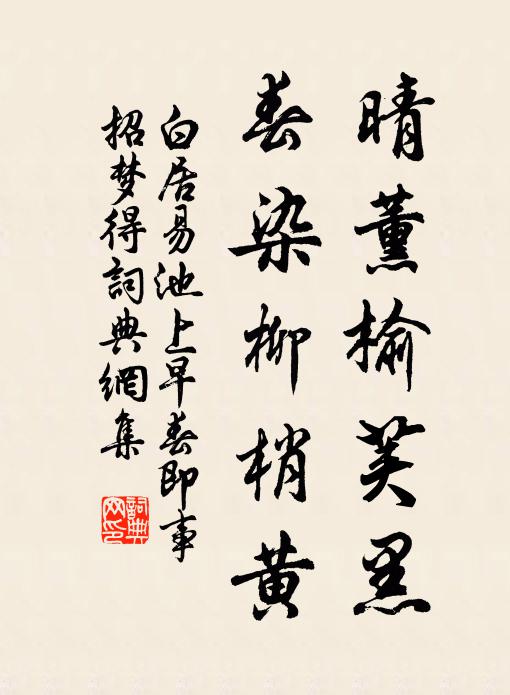 晴薰榆荚黑
春染柳梢黄
白居易池上早春即事
招梦得詞典網集
詞典網印